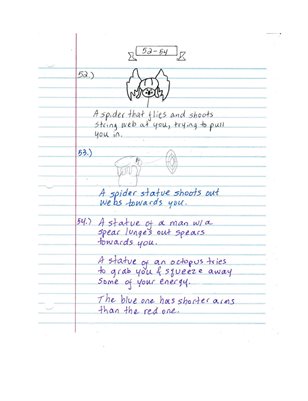 52-54
52.)
A spider that flies and shoots
string web at you, trying to pull
you in.
53.)
A spider statue shoots out
webs towards you.
54.) A statue of a man w/a
spear lunges out spears
towards you.
A statue of an octopus tries
to grab you & squeeze away
some of your energy.
The blue one has shorter arms
than the red one.